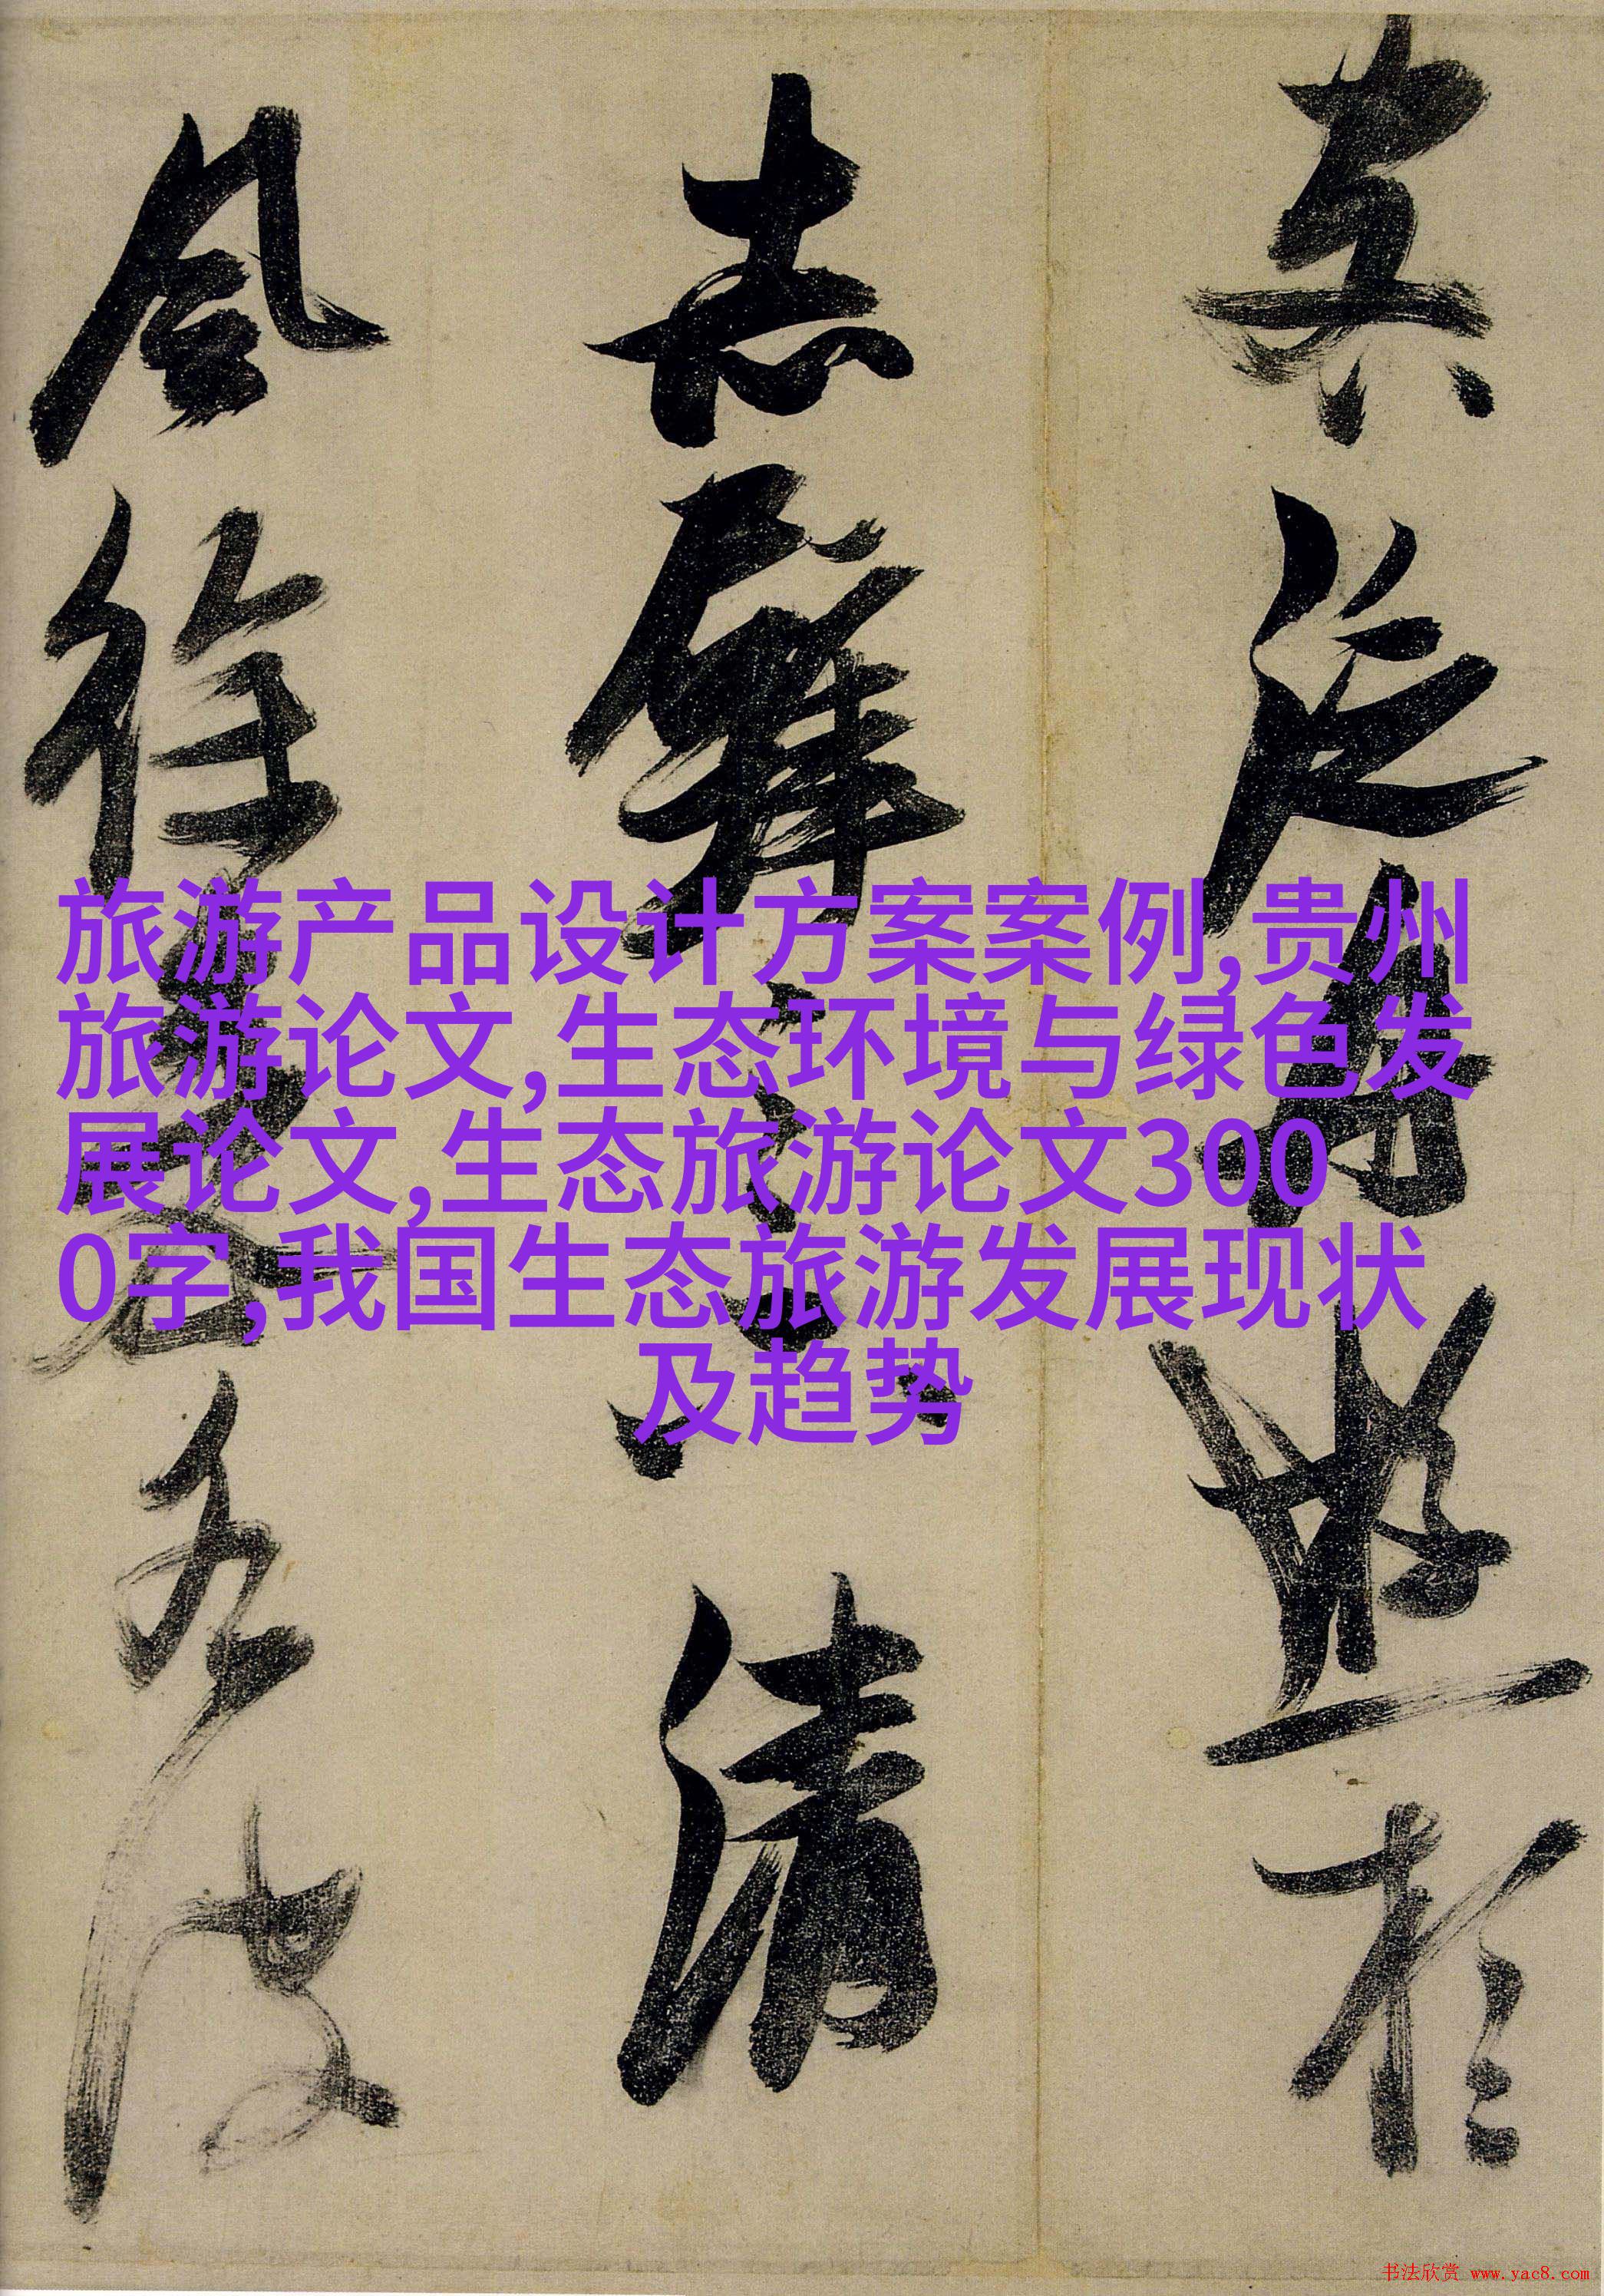 泛舟遊於
赤壁之下清
風徐來水波
旅游产品设计方案案例,贵州
旅游论文,生态环境与绿色发
展论文,生态旅游论文300
0字,我国生态旅游发展现状
及趋势
书法欣赏 www.yac8.com